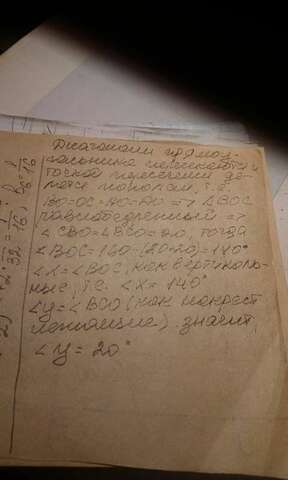 Диагонали прямоу-
гольника пересекаются и
точкой пересечения де-
лятся пополам, т.е.
BO=OC=AO=AD => ΔBOC
равнобедренный =>
∠CBO=∠BCO=20, тогда
∠BOC=180-(20+20)=140°
∠x=∠BOC, как вертикаль-
ные, т.е. ∠x=140°
∠y=∠BCO (как накрест
лежащие) значит,
∠y=20°